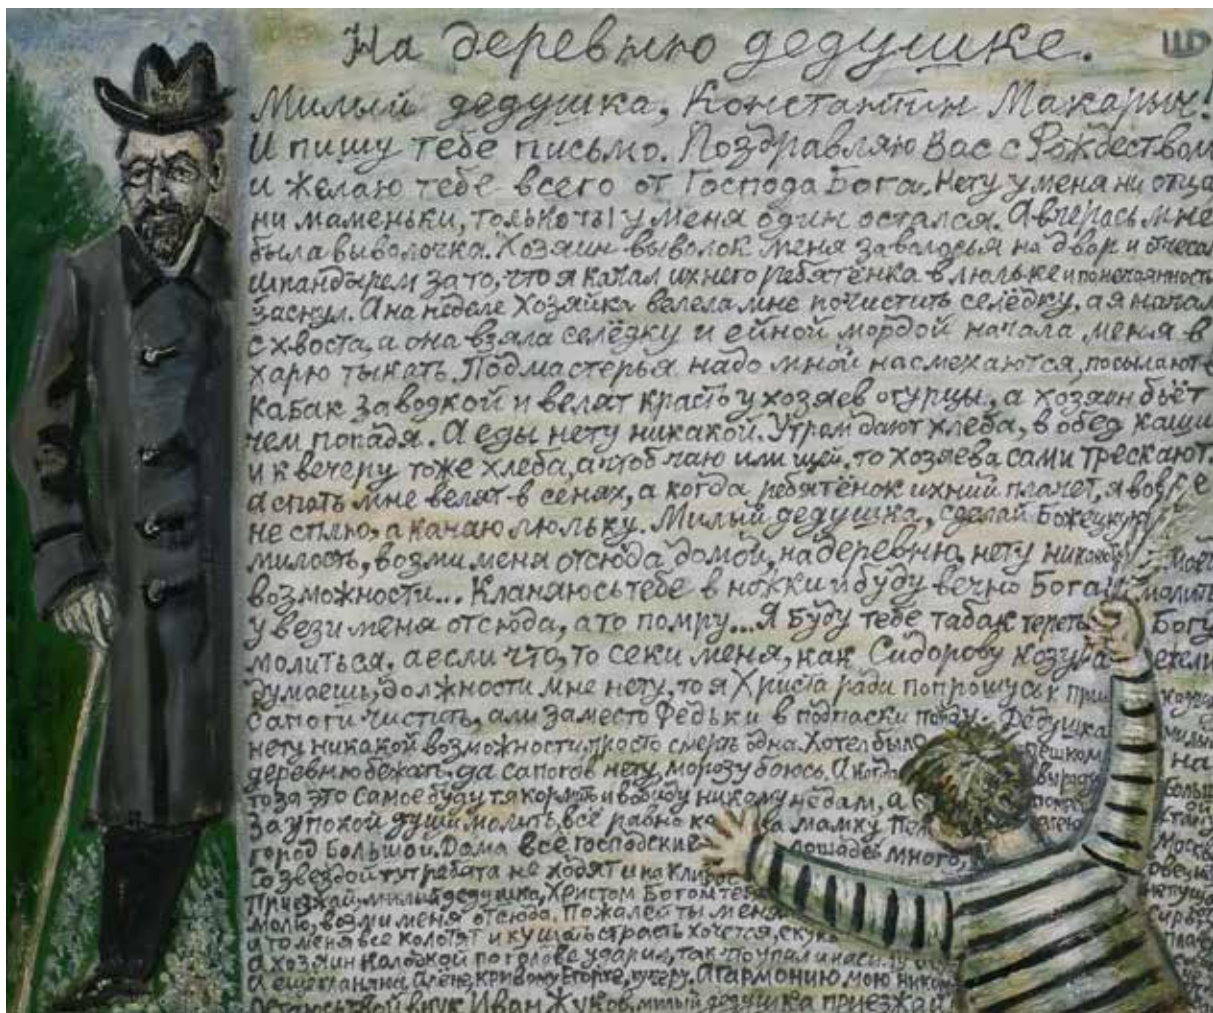 На деревню дедушке.
ШО
Милый дедушка, Константин Макарыч!
И пишу тебе письмо. Поздравляю Вас с Рождеством
и желаю тебе всего от Господа Бога. Нету у меня ни отца
ни маменьки, только ты у меня один остался. А вчерась мне
была выволочка. Хозяин выволок меня за волосья на двор и отчесал
шпандырем за то, что я качал ихнего ребятёнка в люльке и по нечаянности
заснул. А на неделе Хозяйка велела мне почистить селёдку, а я начал
с хвоста, а она взяла селёдку и ейной мордой начала меня в
харю тыкать. Подмастерья надо мной насмехаются, посылают в
кабак за водкой и велят красть у хозяев огурцы, а хозяин бьёт
чем попадя. А еды нету никакой. Утром дают хлеба, в обед каши
и к вечеру тоже хлеба, а чтоб чаю или щей, то хозяева сами трескают.
а спать мне велят в сенях, а когда ребятёнок ихний плачет, я вовсе
не сплю, а качаю люльку. Милый дедушка, сделай Божецкую
милость, возми меня отсюда домой, на деревню, нету никакой моей
возможности... Кланяюсь тебе в ножки и буду вечно Бога молить
увези меня отсюда, а то помру... Я буду тебе табак тереть Богу
молиться, а если что, то секи меня, как Сидорову козу. А ежели
думаешь, должности мне нету, то я Христа ради попрошусь к
сапоги чистить, али заместо Федьки в подпаски пойду. Дедушка
нету никакой возможности, просто смерть одна. Хотел было пешком на
деревню бежать, да сапогов нету, морозу боюсь. А когда вырасту
то за это самое буду тя кормить и в обиду никому не дам, а
за упокой души молить, всё равно ка за мамку
город большой. Дома все господские лошадей много,
Со звездой тут ребята не ходят и на клирос
Приезжай, милый дедушка, Христом Богом тебя
молю, возми меня отсюда. Пожалей ты меня
а то меня все колотят и кушать страсть хочется,
А хозяин колодкой по голове ударил, так что упал и насилу
А ещё кланяюсь Алёне, кривому Егорке, кучеру, а гармонию мою никому
Остаюсь твой внук Иван Жуков, милый дедушка приезжай